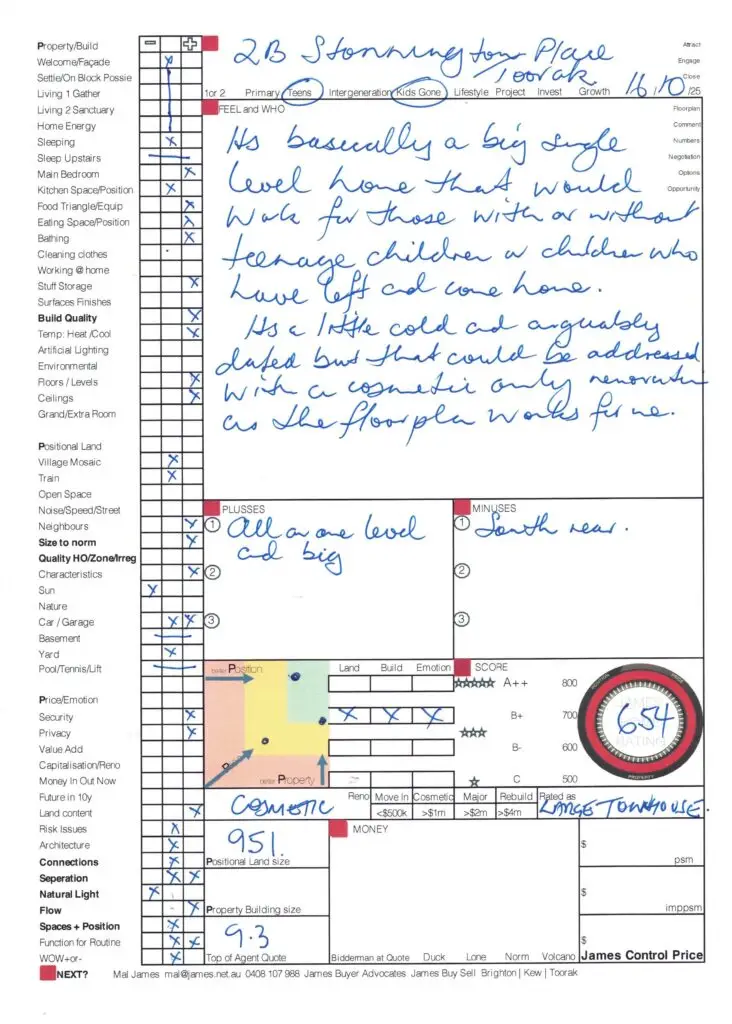 Property/Build
Welcome/Façade
Settle/On Block Possie
Living 1 Gather
Living 2 Sanctuary
Home Energy
Sleeping
Sleep Upstairs
Main Bedroom
Kitchen Space/Position
Food Triangle/Equip
Eating Space/Position
Bathing
Cleaning clothes
Working @ home
Stuff Storage
Surfaces Finishes
Build Quality
Temp: Heat /Cool
Artificial Lighting
Environmental
Floors / Levels
Ceilings
Grand/Extra Room
Positional Land
Village Mosaic
Train
Open Space
Noise/Speed/Street
Neighbours
Size to norm
Quality HO/Zone/Irreg
Characteristics
Sun
Nature
Car / Garage
Basement
Yard
Pool/Tennis/Lift
Price/Emotion
Security
Privacy
Value Add
Capitalisation/Reno
Money In Out Now
Future in 10y
Land content
Risk Issues
Architecture
Connections
Seperation
Natural Light
Flow
Spaces + Position
Function for Routine
WOW+or-
NEXT?
2B Stonnington Place
Toorak
Attract
Engage
Close
1or 2 Primary Teens Intergeneration Kids Gone Lifestyle Project Invest Growth 16/10/25
FEEL and WHO
Floorplan
Comment
Numbers
Negotiation
Options
Opportunity
Its basically a big single
level home that would
work for those with or without
teenage children or children who
have left and come home.
Its a little cold and arguably
dated but that could be addressed
with a cosmetic only renovation
as the floorplan works for me.
PLUSSES
1 All on one level
and big
2
3
MINUSES
1 South rear.
2
3
better Position
better Property
Land Build Emotion
SCORE
A++ 800
B+ 700
B- 600
C 500
654
POSITION
PROPERTY
COSMETIC
Reno Move In Cosmetic Major Rebuild Rated as
<$500k >$1m >$2m >$4m
LARGE TOWNHOUSE.
951.
Positional Land size
Property Building size
9.3
Top of Agent Quote
MONEY
Bidderman at Quote Duck Lone Norm Volcano
$ psm
$ imppsm
$
James Control Price
Mal James mal@james.net.au 0408 107 988 James Buyer Advocates James Buy Sell Brighton | Kew | Toorak